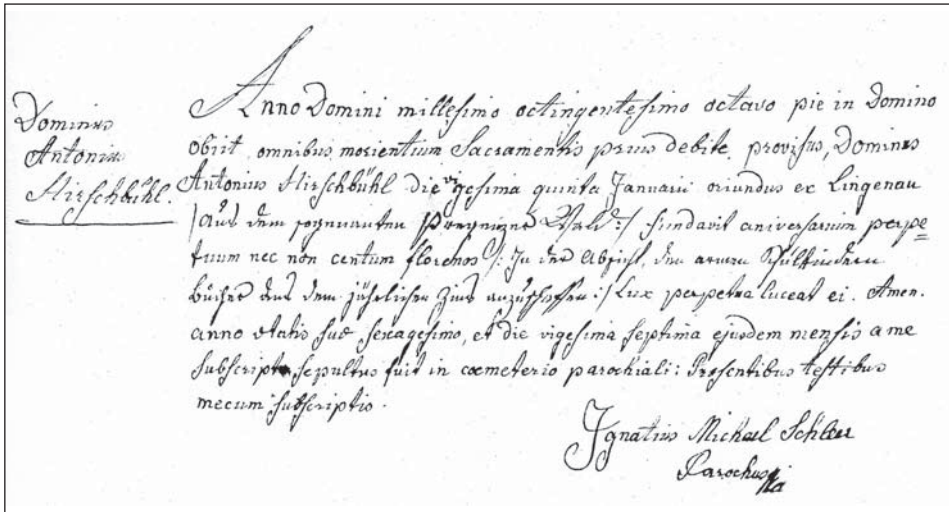 Dominus
Antonius
Hirschbühl.
Anno Domini millesimo octingentesimo octavo pie in Domino
obiit omnibus morientium Sacramentis prius debite provisus, Dominus
Antonius Hirschbühl die vigesima quinta Januarii oriundus ex Lingenau
/: aus dem sogenannten Pregenzer Wald :/ fundavit aniversarium perpe=
tuum nec non centum florenos /: In der Absicht, den armen Schulkindern
bücher aus dem jährlichen Zins anzuschaffen :/ Lux perpetua luceat ei. Amen.
anno etatis sue sexagesimo, et die vigesima septima ejusdem mensis a me
subscripto sepultus fuit in coemeterio parochiali: Presentibus testibus
mecum subscriptis.
Ignatius Michael
Parochus